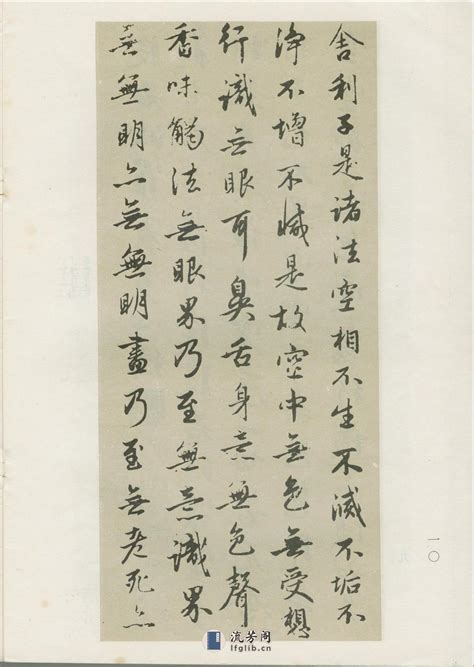 舍利子是诸法空相不生不滅不垢不
淨不增不減是故空中無色無受想
行識无眼耳鼻舌身意無色聲
香味觸法無眼界乃至無意識界
無無明亦無無明盡乃至無老死亦
一〇
流芳阁
lfglib.cn